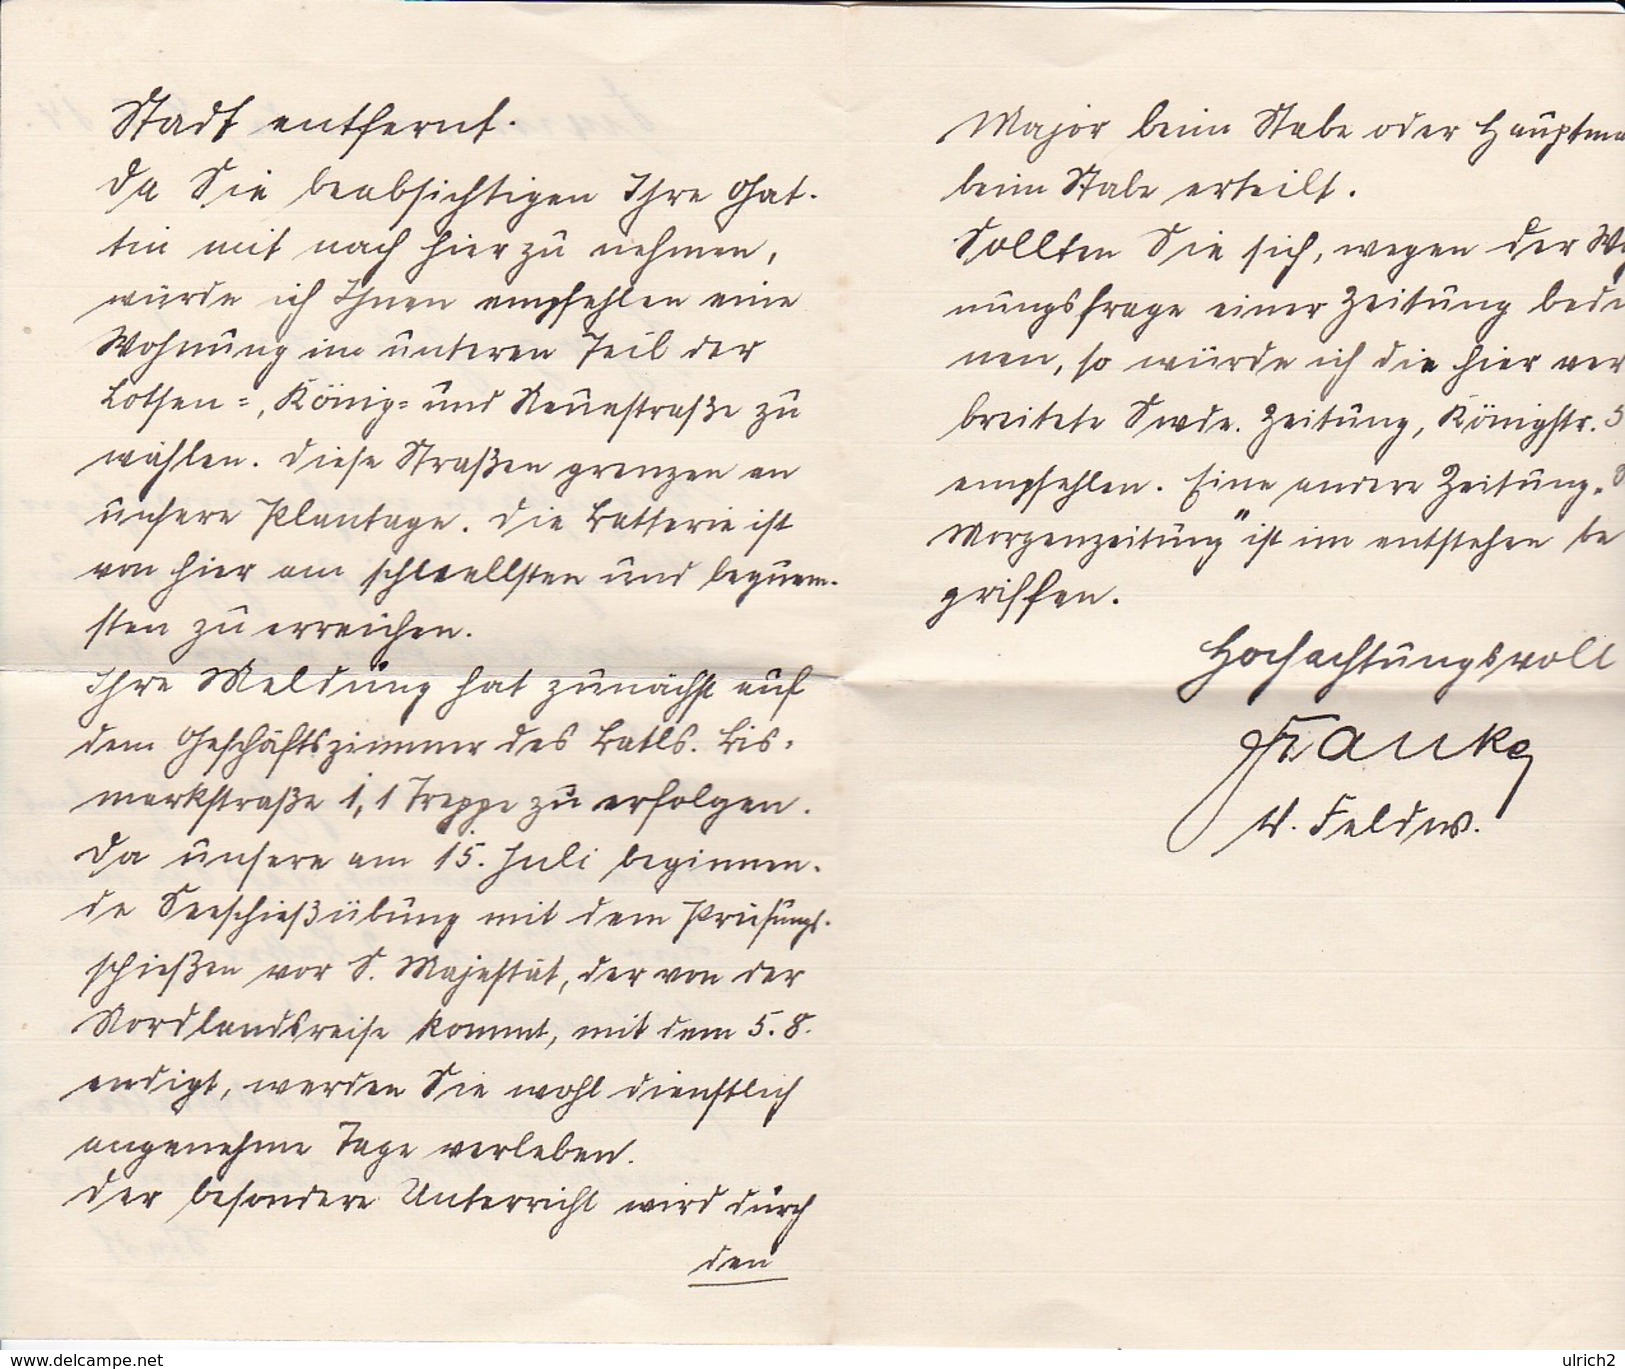 Stadt entfernt.
Da Sie beabsichtigen Ihre Gat-
tin mit nach hier zu nehmen,
würde ich Ihnen empfehlen eine
Wohnung im unteren Teil der
Lotsen=, König= und Neuestraße zu
wählen. Diese Straßen grenzen an
unsere Plantage. Die Batterie ist
von hier am schnellsten und bequem-
sten zu erreichen.
Ihre Meldung hat zunächst auf
dem Geschäftszimmer des Batls. Bis-
markstraße 1, 1 Treppe zu erfolgen.
Da unsere am 15. Juli beginnen-
de Seeschießübung mit dem Prüfungs-
schießen vor S. Majestät, der von der
Nordlandsreise kommt, mit dem 5.8.
endigt, werden Sie wohl dienstlich
angenehme Tage verleben.
Der besondere Unterricht wird durch
den
Major beim Stabe oder Hauptma
beim Stabe erteilt.
Sollten Sie sich, wegen der Wo
nungsfrage einer Zeitung bedie
nen, so würde ich die hier ver
breitete Swde. Zeitung, Königstr. 5
empfehlen. Eine andere Zeitung „
Morgenzeitung" ist im entstehen be
griffen.
Hochachtungsvoll
Franke
V. Feldw.
delcampe.net
ulrich2